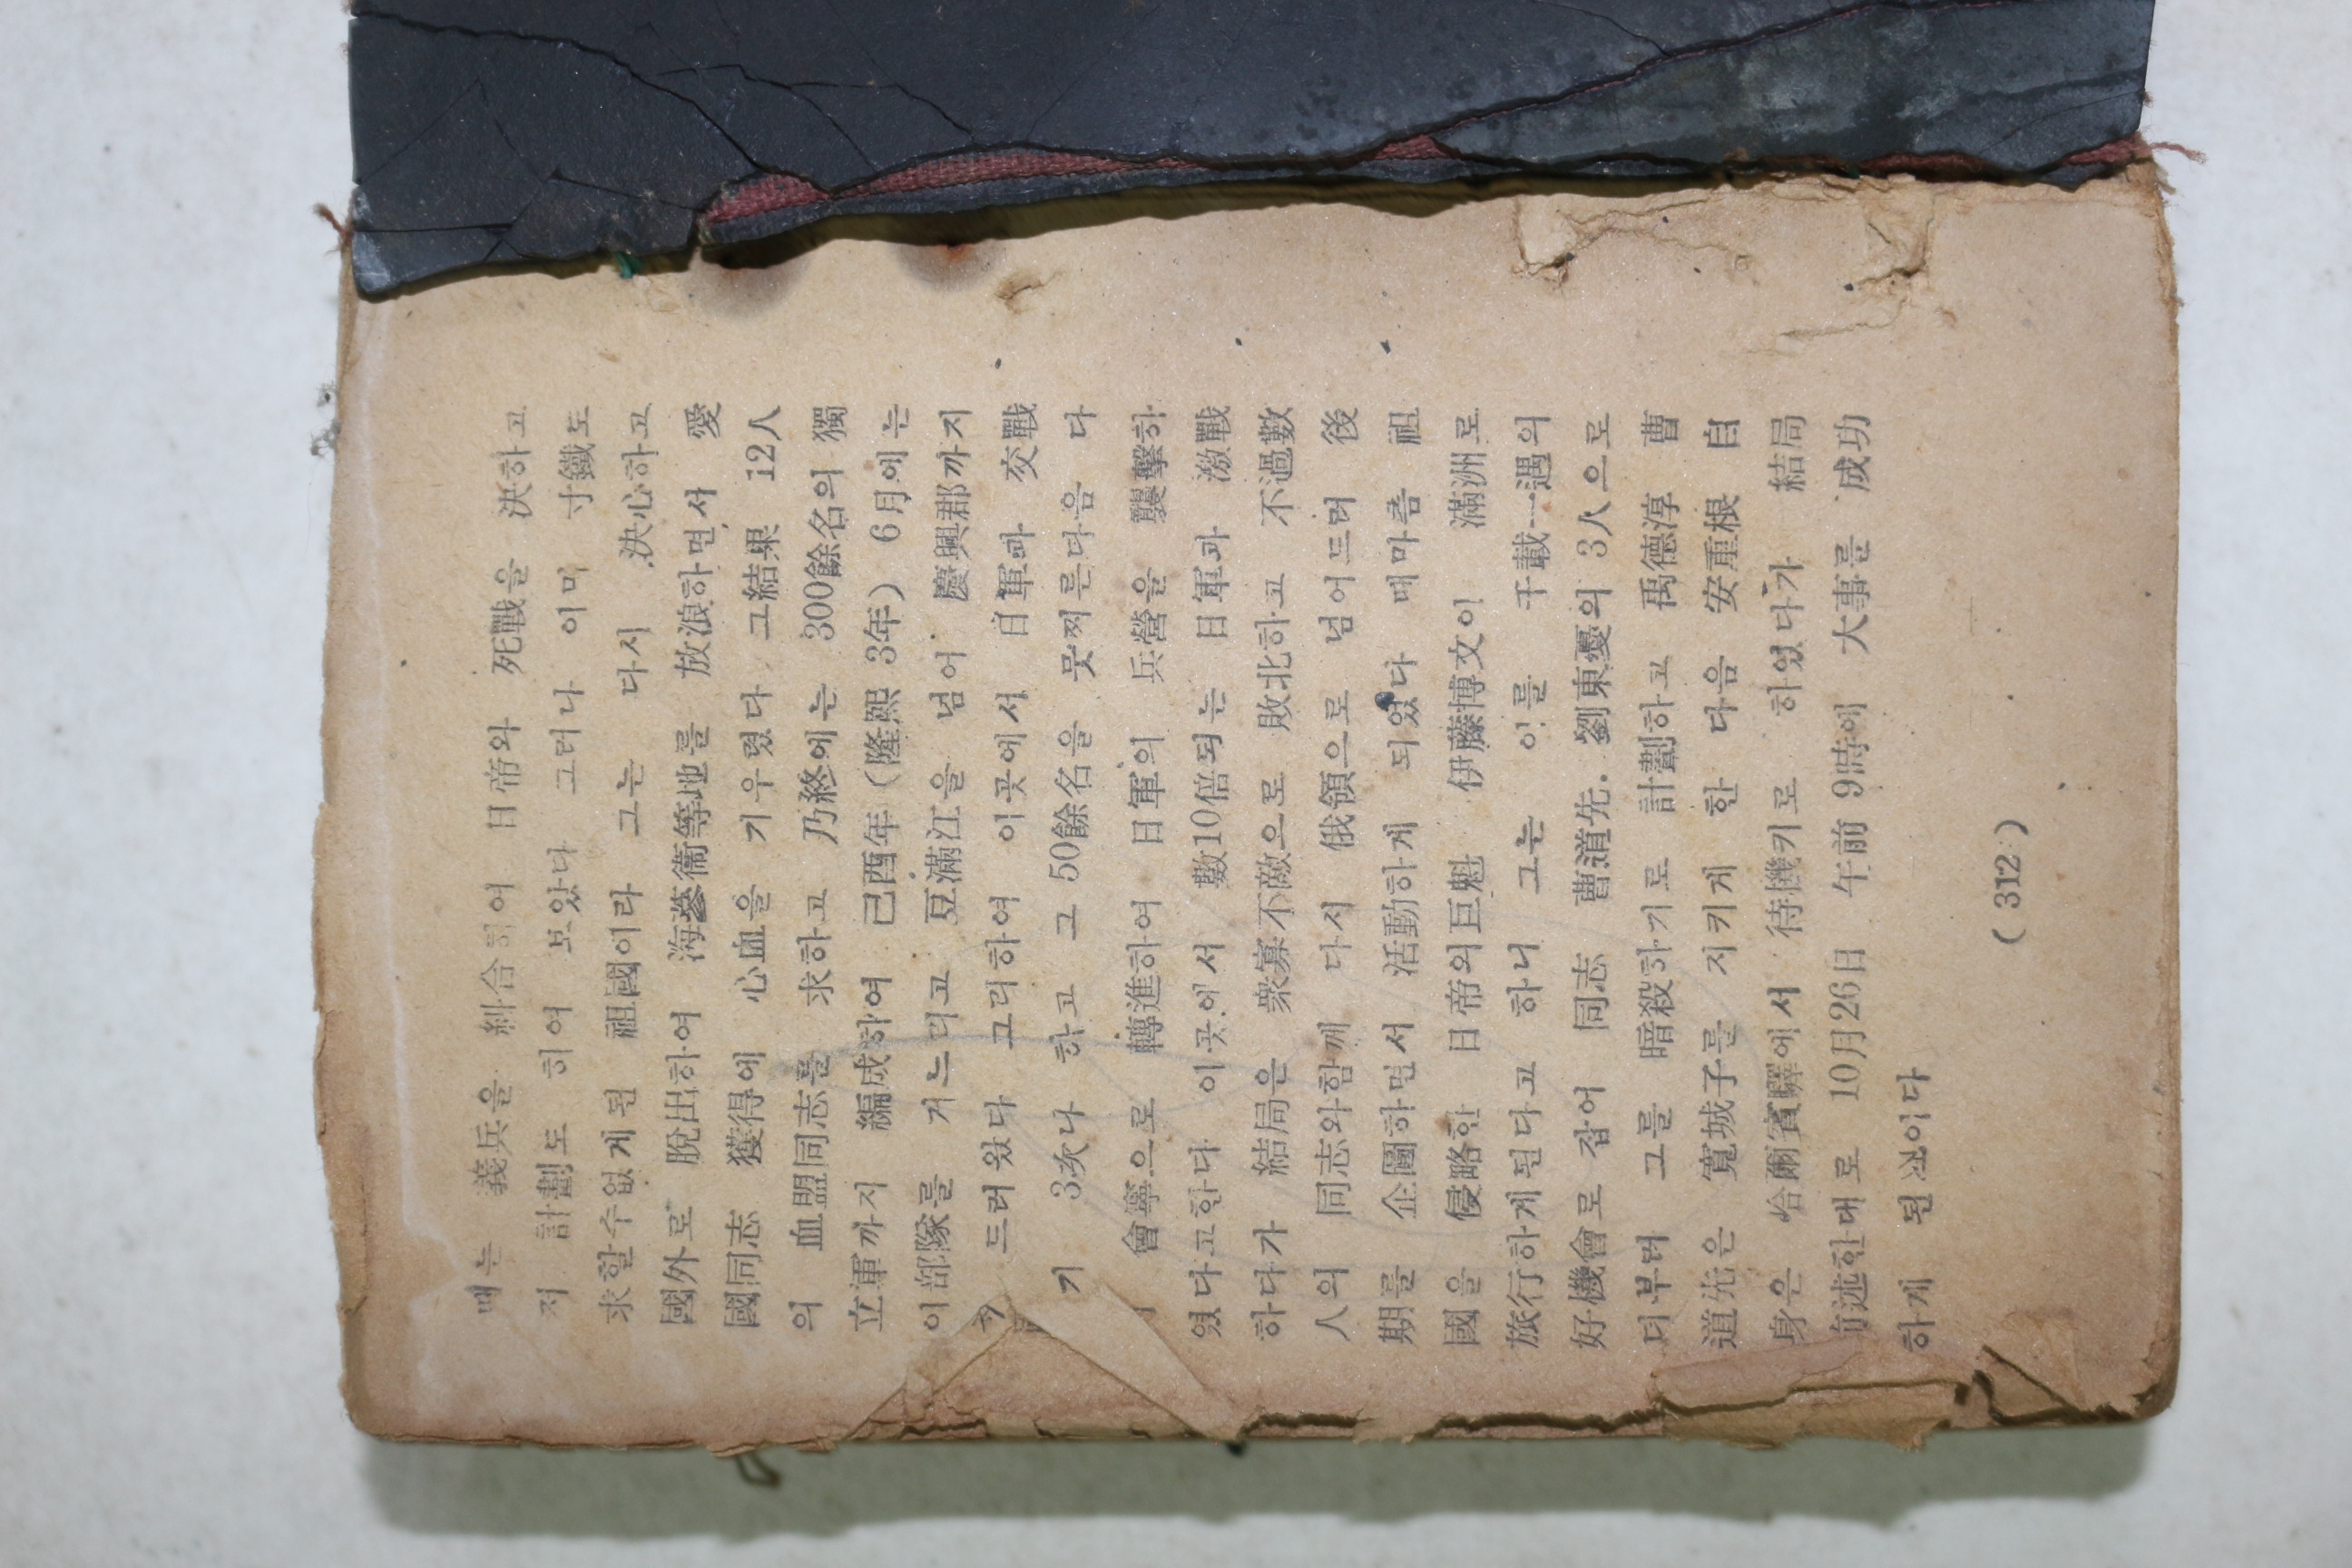 때는 義兵을 糾合하여 日帝와 死戰을 決하고
저 計劃도 하여 보았다 그러나 이미 寸鐵도
求할수없게된 祖國이라 그는 다시 決心하고
國外로 脫出하여 海蔘衞等地를 放浪하면서 愛
國同志 獲得에 心血을 기우렸다 그結果 12人
의 血盟同志를 求하고 乃終에는 300餘名의 獨
立軍까지 編成하여 己酉年(隆熙 3年) 6月에는
이部隊를 거느리고 豆滿江을 넘어 慶興郡까지
드러왔다 그리하여 이곳에서 日軍과 交戰
기 3次나 하고 그 50餘名을 뭇찌른다음 다
會寧으로 轉進하여 日軍의 兵營을 襲擊하
였다고한다 이곳에서 數10倍되는 日軍과 激戰
하다가 結局은 衆寡不敵으로 敗北하고 不過數
人의 同志와함께 다시 俄領으로 넘어드러 後
期를 企圖하면서 活動하게 되였다 때마츰 祖
國을 侵略한 日帝의巨魁 伊藤博文이 滿洲로
旅行하게된다고 하니 그는 이를 千載一遇의
好機會로 잡어 同志 曹道先. 劉東夏의 3人으로
더부러 그를 暗殺하기로 計劃하고 禹德淳 曹
道先은 寬城子를 지키게 한 다음 安重根 自
身은 哈爾賓驛에서 待機키로 하였다가 結局
前述한대로 10月26日 午前 9時에 大事를 成功
하게 된것이다
(312)